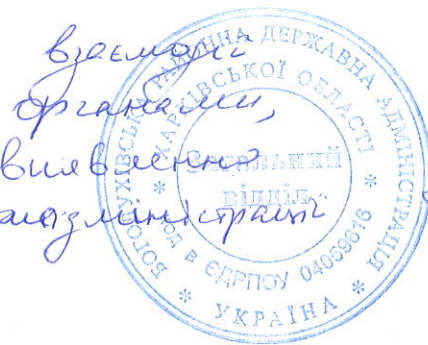 взаємодії
органами,
виявленню
адміністрації
БОГОДУХІВСЬКА РАЙОННА ДЕРЖАВНА АДМІНІСТРАЦІЯ
ХАРКІВСЬКОЇ ОБЛАСТІ
Загальний
відділ
* УКРАЇНА *
* код в ЄДРПОУ 04059616 *